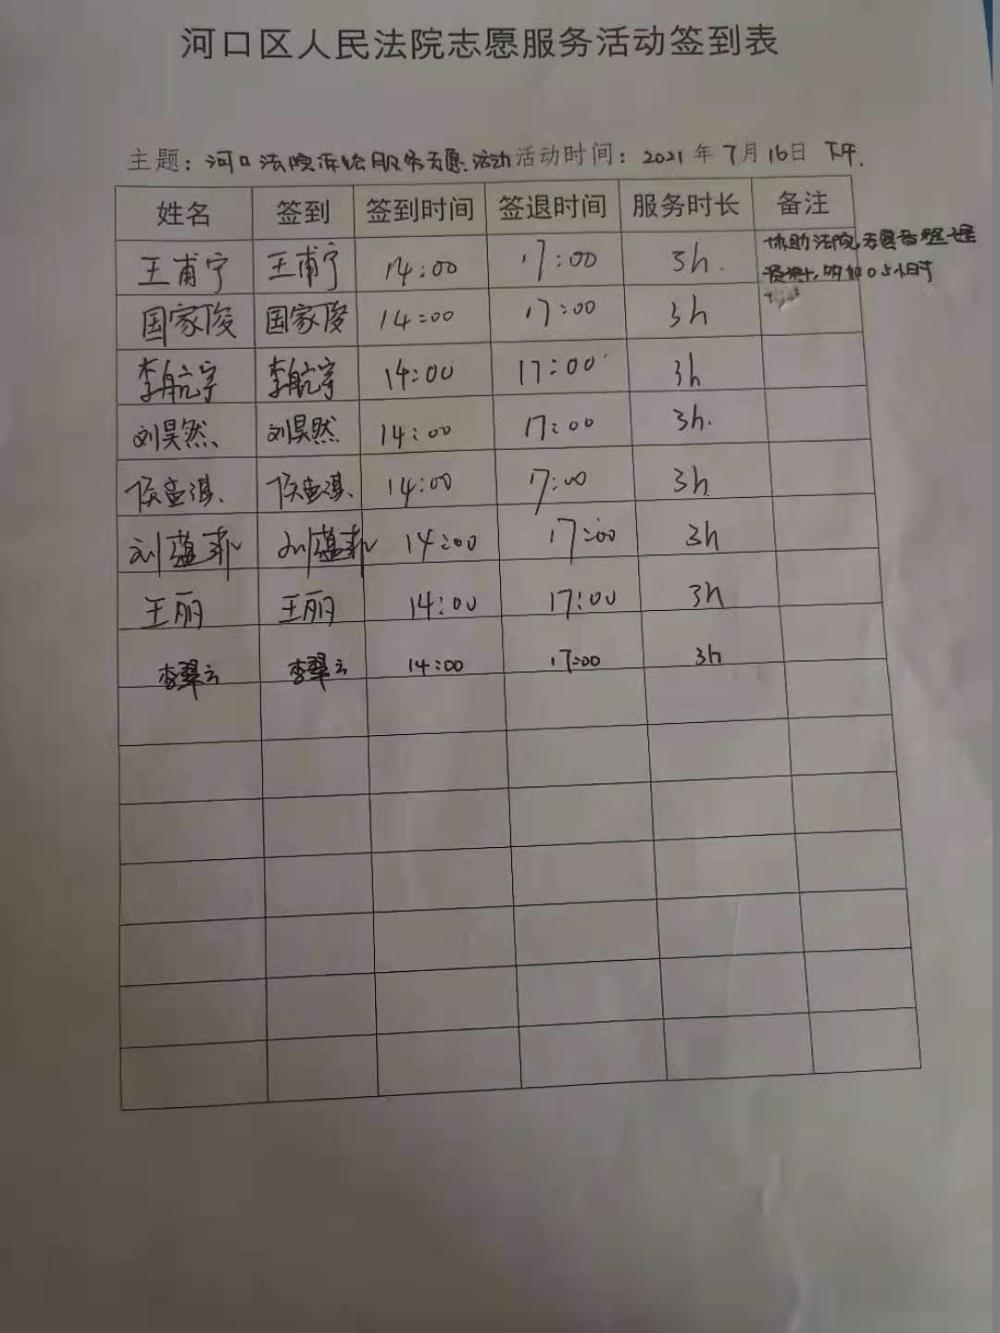 河口区人民法院志愿服务活动签到表
主题：河口法院诉讼服务志愿活动 活动时间：2021年7月16日 下午.
姓名 签到 签到时间 签退时间 服务时长 备注
王甫宁 王甫宁 14:00 17:00 3h. 协助法院志愿者整理
资料,增加0.5小时
国家俊 国家俊 14:00 17:00 3h
李航宇 李航宇 14:00 17:00 3h
刘昊然、 刘昊然 14:00 17:00 3h.
侯孟淇、 侯孟淇、 14:00 17:00 3h
刘蕴菲 刘蕴菲 14:00 17:00 3h
王丽 王丽 14:00 17:00 3h
李翠云 李翠云 14:00 17:00 3h